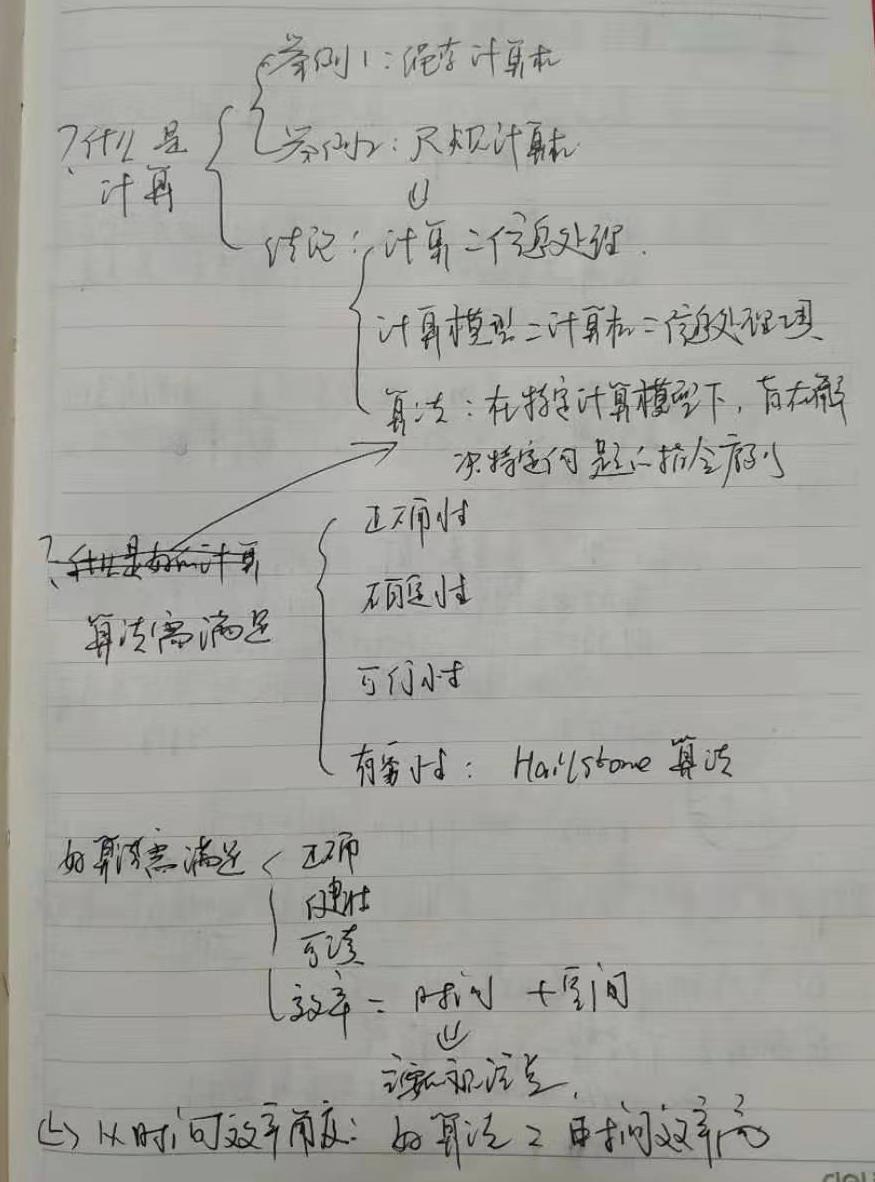 举例1：绳索计算机
？什么是
计算
举例2：尺规计算机
⇓
结论：计算=信息处理.
计算模型=计算机=信息处理工具
算法：在特定计算模型下，旨在解
决特定问题的指令序列
？什么是好的计算
算法需满足
正确性
确定性
可行性
有穷性：Hailstone 算法
好算法需满足
正确
健壮
可读
效率 = 时间 + 空间
⇓
主要关注点.
从时间效率角度：好算法=时间效率高